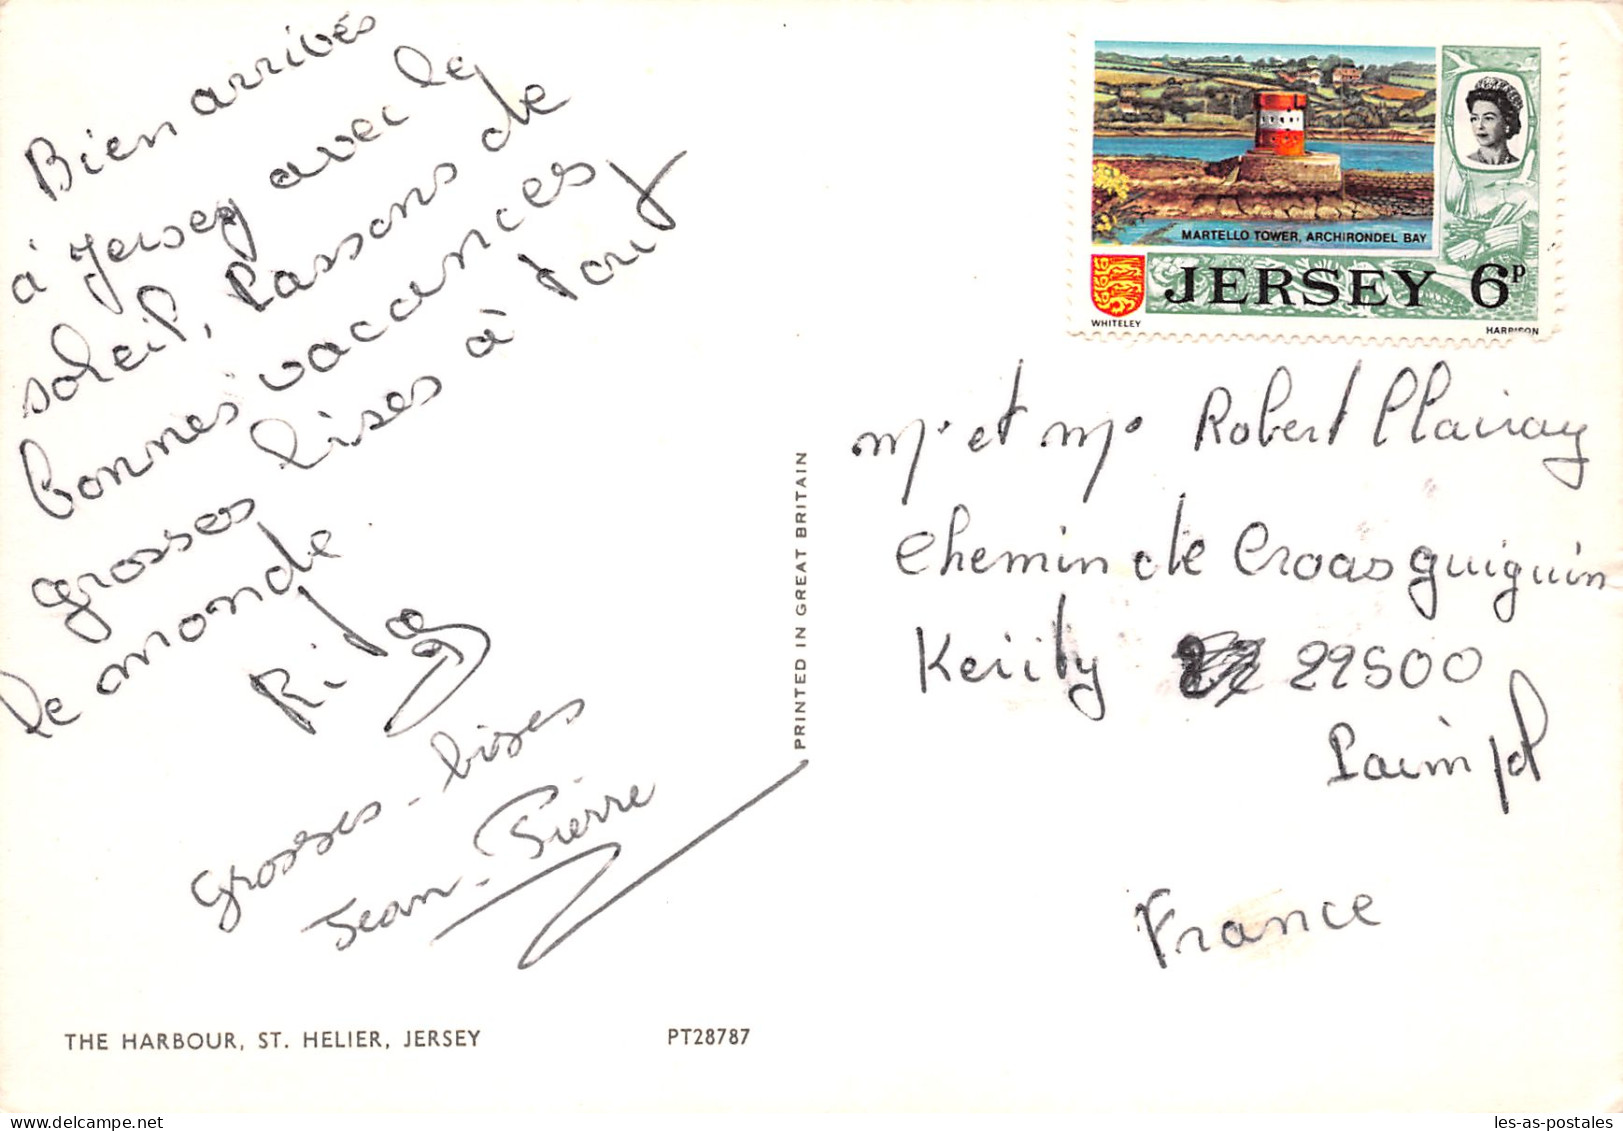 Bien arrivés
à Jersey avec le
soleil, Passons de
bonnes vacances
grosses bises à tout
le monde.
Rita
grosses bises
Jean-Pierre
THE HARBOUR, ST. HELIER, JERSEY
PT28787
PRINTED IN GREAT BRITAIN
MARTELLO TOWER, ARCHIRONDEL BAY
JERSEY 6P
WHITELEY
HARRISON
Mr et Mme Robert
Chemin de Croas guiguin
Kerity 22500
Paimpol
France
les-as-postales